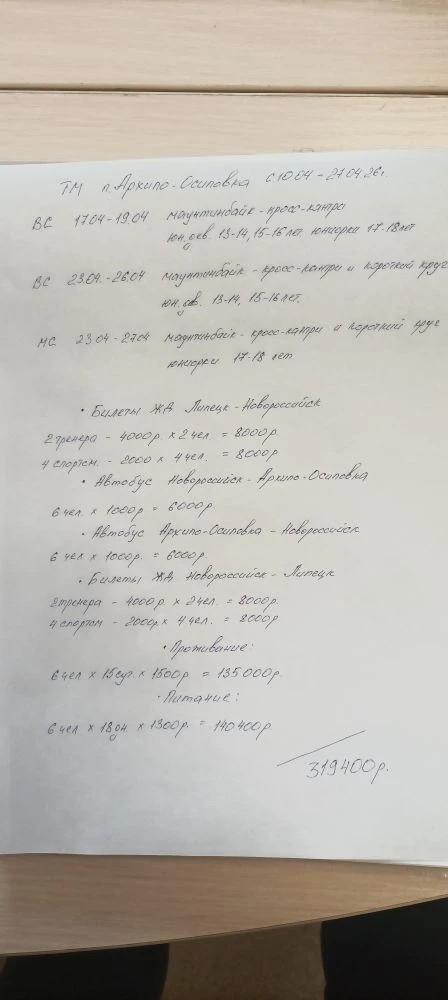 ТМ п. Архипо-Осиповка с 10.04 - 27.04.26г.
ВС 17.04-19.04 маунтинбайк-кросс-кантри
юн, дев. 13-14, 15-16 лет. юниорки 17-18 лет
ВС 23.04.-26.04 маунтинбайк - кросс-кантри и короткий круг
юн. дев. 13-14, 15-16 лет.
МС 23.04 - 27.04 маунтинбайк - кросс-кантри и короткий круг
юниорки 17-18 лет
• Билеты ЖД Липецк - Новороссийск
2 тренера - 4000р. × 2 чел. = 8000р.
4 спортсм. - 2000 × 4 чел. = 8000р
• Автобус Новороссийск-Архипо-Осиповка
6 чел. × 1000р = 6000р.
• Автобус Архипо-Осиповка - Новороссийск
6 чел × 1000р. = 6000р.
• Билеты ЖД Новороссийск - Липецк
2 тренера - 4000р. × 2 чел. = 8000р.
4 спортсм - 2000р. × 4 чел. = 8000р
• Проживание:
6 чел × 15 сут. × 1500р = 135000р.
• Питание:
6 чел × 18 дн. × 1300р. = 140400р.
319400р.